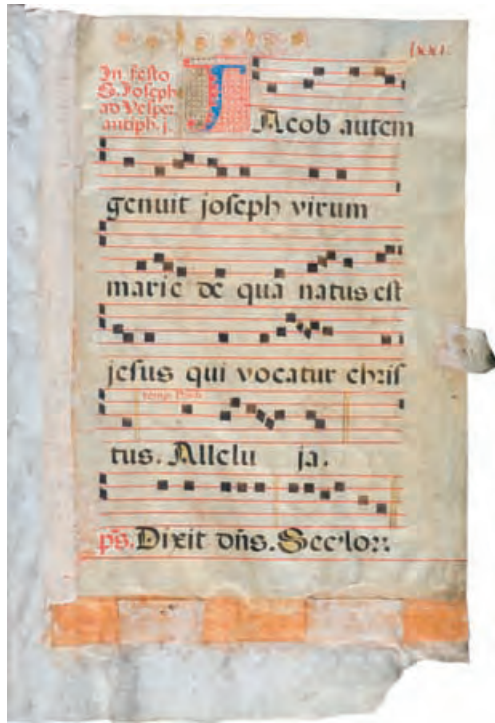 lxxi.
In festo
S. Joseph
ad Vesper
antiph. j.
JAcob autem
genuit joseph virum
marie de qua natus est
jesus qui vocatur chris
temp. Pasch.
tus. Allelu ja.
ps. Dixit dñs. Sec'lor:.